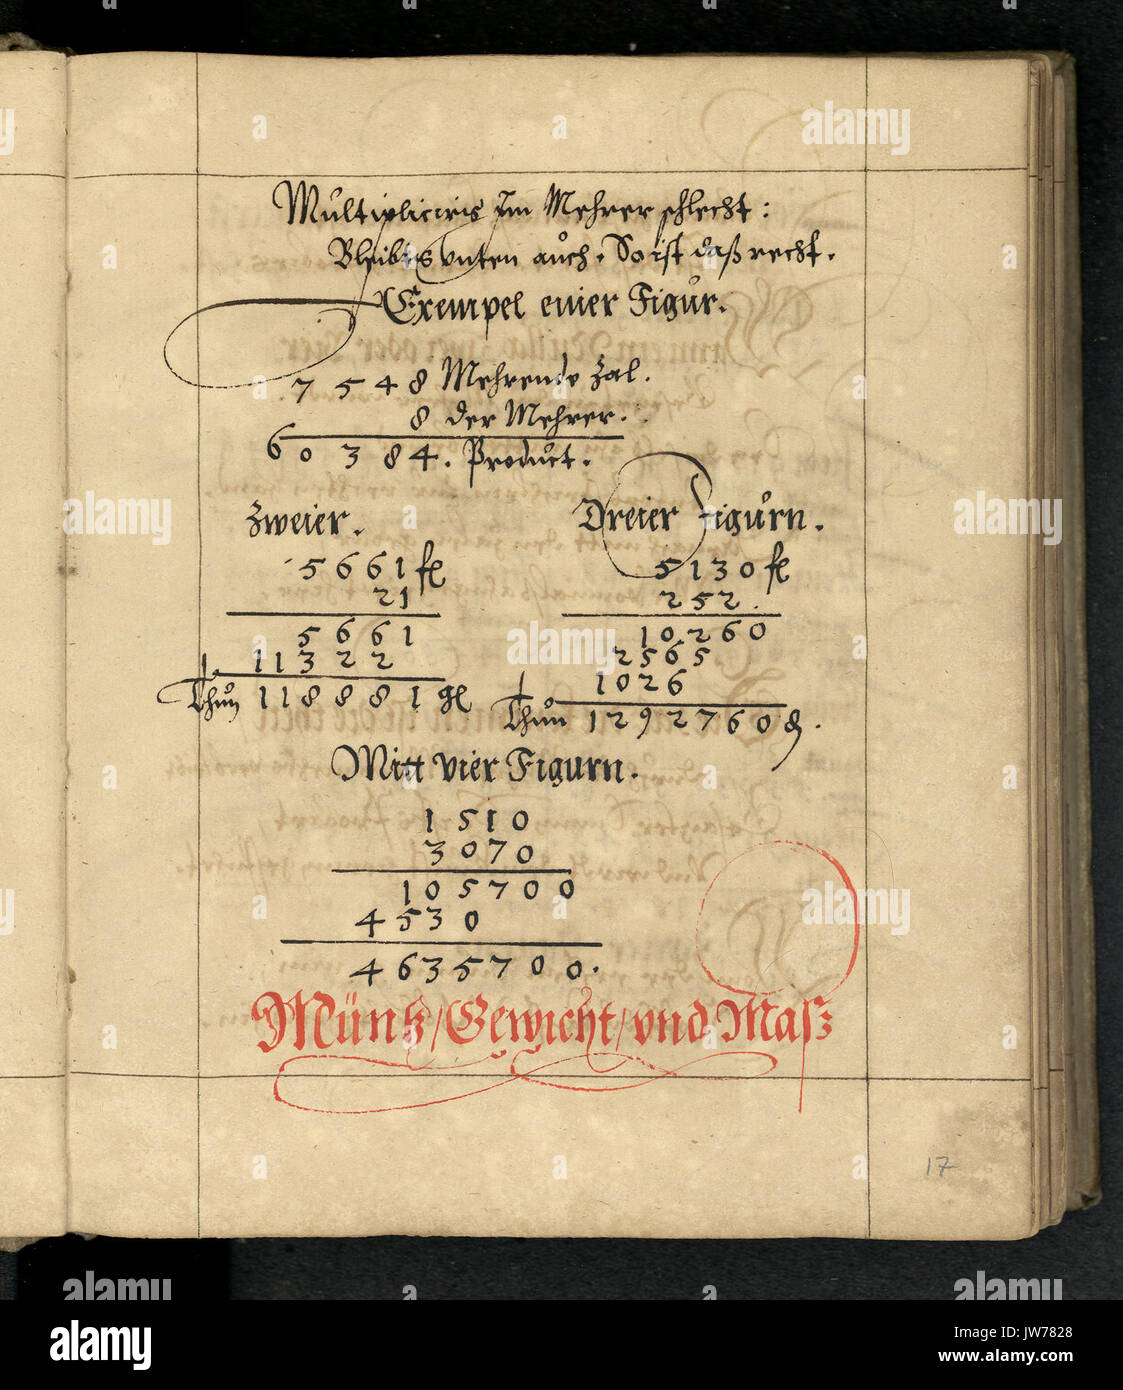 Multiplicirs Im Mehrer schlecht:
Bleibts unten auch. So ist daß recht.
Exempel einer Figur.
7548 Mehrende Zal.
8 der Mehrer.
60384. Product.
Zweier.
5661 fl
21
5661
11322
Thun 118881 gl
Dreier Figurn.
5130 fl
252.
10260
2565
1026
Thun 1292760
Mitt vier Figurn.
1510
3070
105700
4530
4635700.
Müntz/Gewicht/vnd Masz
17
alamy
Image ID: JW7828
www.alamy.com